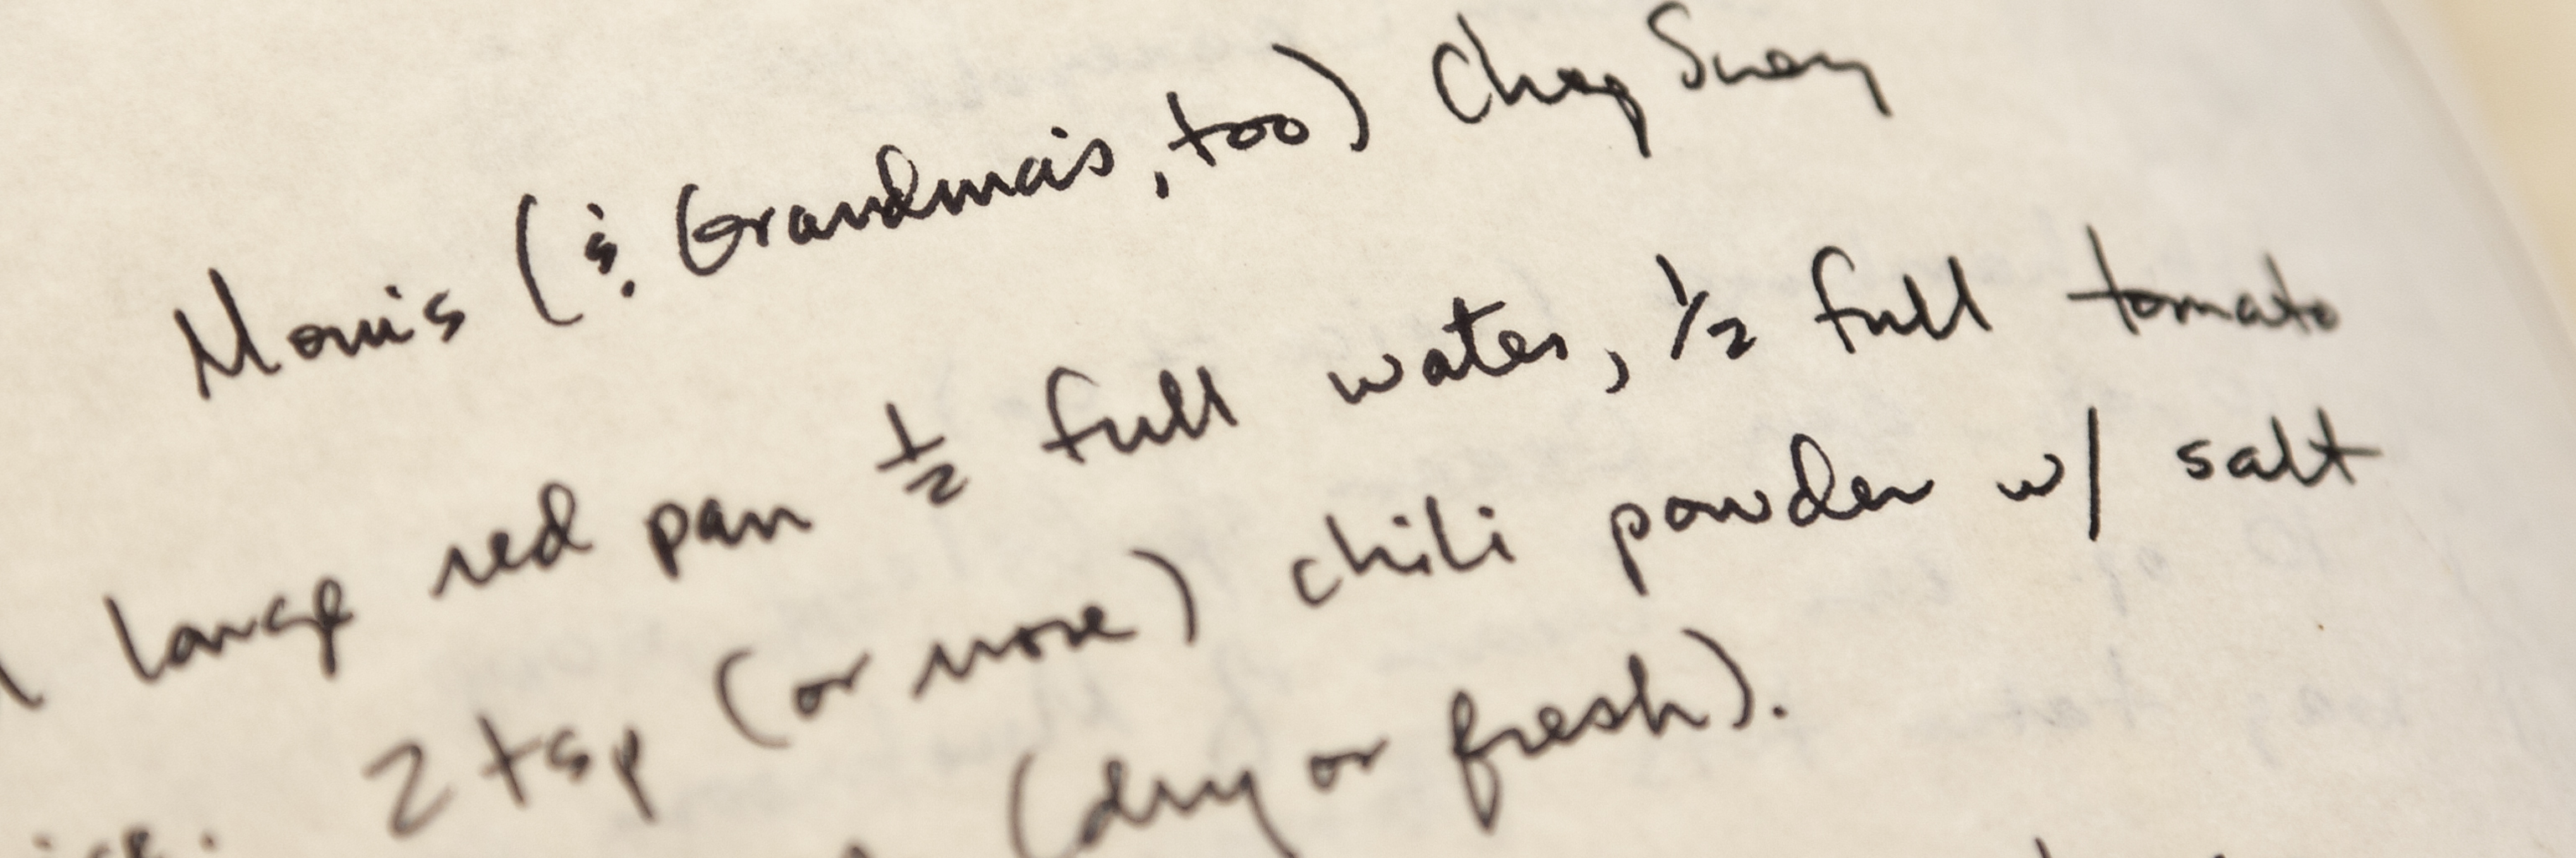 Mom's (& Grandma's, too) Chop Suey
large red pan 1/2 full water, 1/2 full tomato
2 tsp (or more) chili powder w/ salt
(dry or fresh).